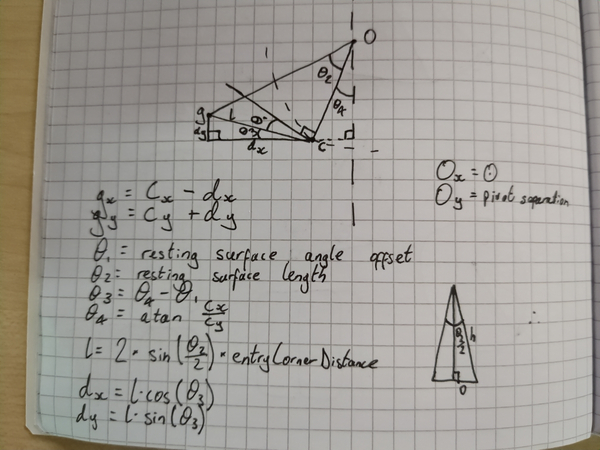 O
θ2
θ4
g
l
θ1
θ3
dy
dx
C
Ox = 0
Oy = pivot separation
gx = Cx - dx
gy = Cy + dy
θ1 = resting surface angle offset
θ2 = resting surface length
θ3 = θ4 - θ1
θ4 = atan Cx/Cy
l = 2 · sin(θ2/2) · entryCornerDistance
dx = l·cos(θ3)
dy = l·sin(θ3)
θ/2
h
O
∴